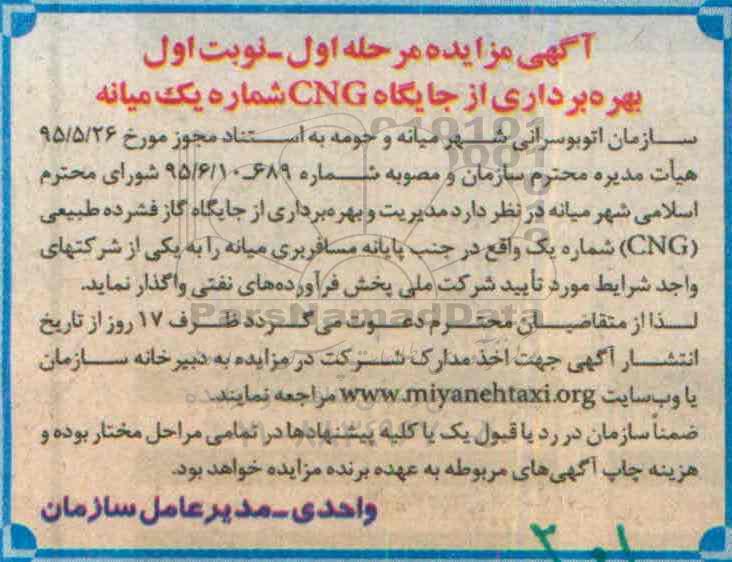 آگهی مزایده مرحله اول ـ نوبت اول
بهره‌برداری از جایگاه CNG شماره یک میانه
سازمان اتوبوسرانی شهر میانه و حومه به استناد مجوز مورخ ۹۵/۵/۲۶
هیأت مدیره محترم سازمان و مصوبه شماره ۶۸۹ـ۹۵/۶/۱۰ شورای محترم
اسلامی شهر میانه در نظر دارد مدیریت و بهره‌برداری از جایگاه گاز فشرده طبیعی
(CNG) شماره یک واقع در جنب پایانه مسافربری میانه را به یکی از شرکتهای
واجد شرایط مورد تأیید شرکت ملی پخش فرآورده‌های نفتی واگذار نماید.
لذا از متقاضیان محترم دعوت می‌گردد ظرف ۱۷ روز از تاریخ
انتشار آگهی جهت اخذ مدارک شرکت در مزایده به دبیرخانه سازمان
یا وب‌سایت www.miyanehtaxi.org مراجعه نمایند.
ضمناً سازمان در رد یا قبول یک یا کلیه پیشنهادها در تمامی مراحل مختار بوده و
هزینه چاپ آگهی‌های مربوطه به عهده برنده مزایده خواهد بود.
واحدی ـ مدیرعامل سازمان
ParsNamadData